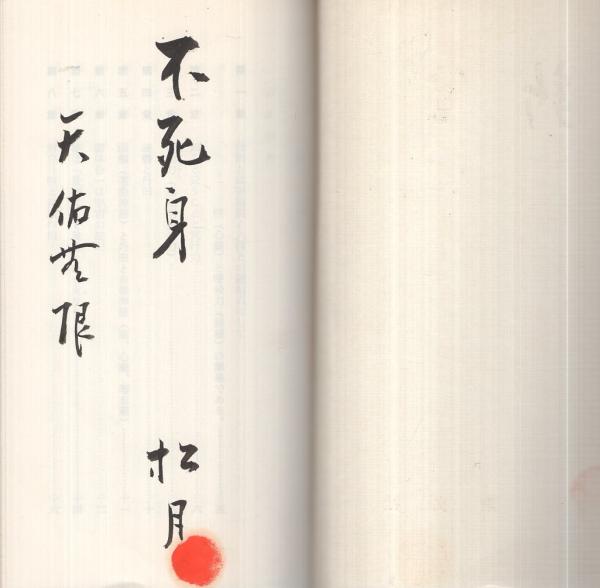 不死身
松月
天佑無限